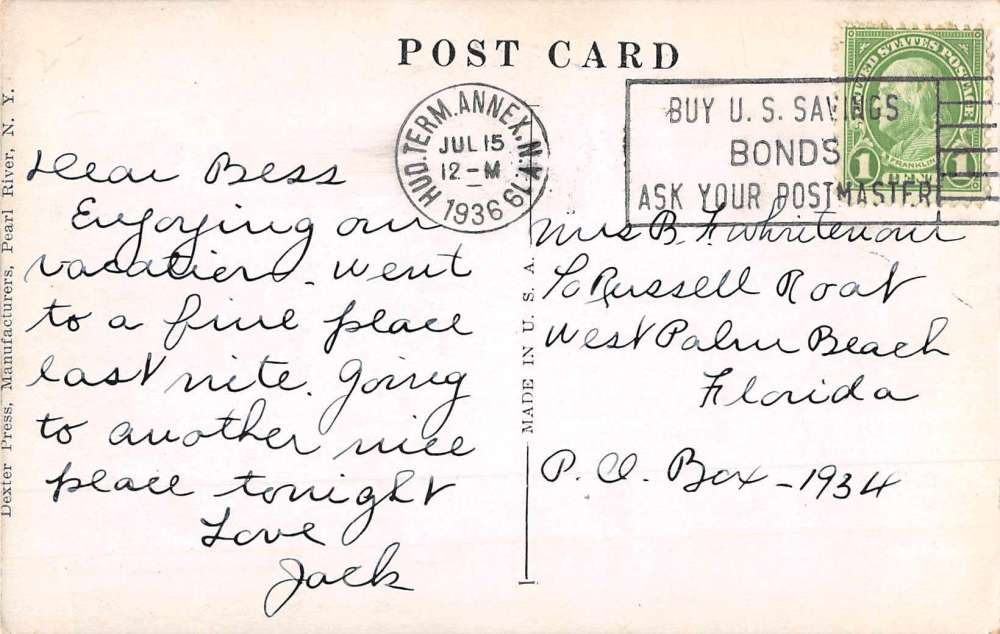 POST CARD
HUD. TERM. ANNEX, N.Y. 19
JUL 15
12-M
1936
BUY U.S. SAVINGS
BONDS
ASK YOUR POSTMASTER
UNITED STATES POSTAGE
1 CENT 1
FRANKLIN
Dear Bess
Enjoying our
vacation. went
to a fine place
last nite. Going
to another nice
place tonight
Love
Jack
Mrs B. F. Whitenour
℅ Russell Roat
West Palm Beach
Florida
P.O. Box - 1934
MADE IN U.S.A.
Dexter Press, Manufacturers, Pearl River, N. Y.